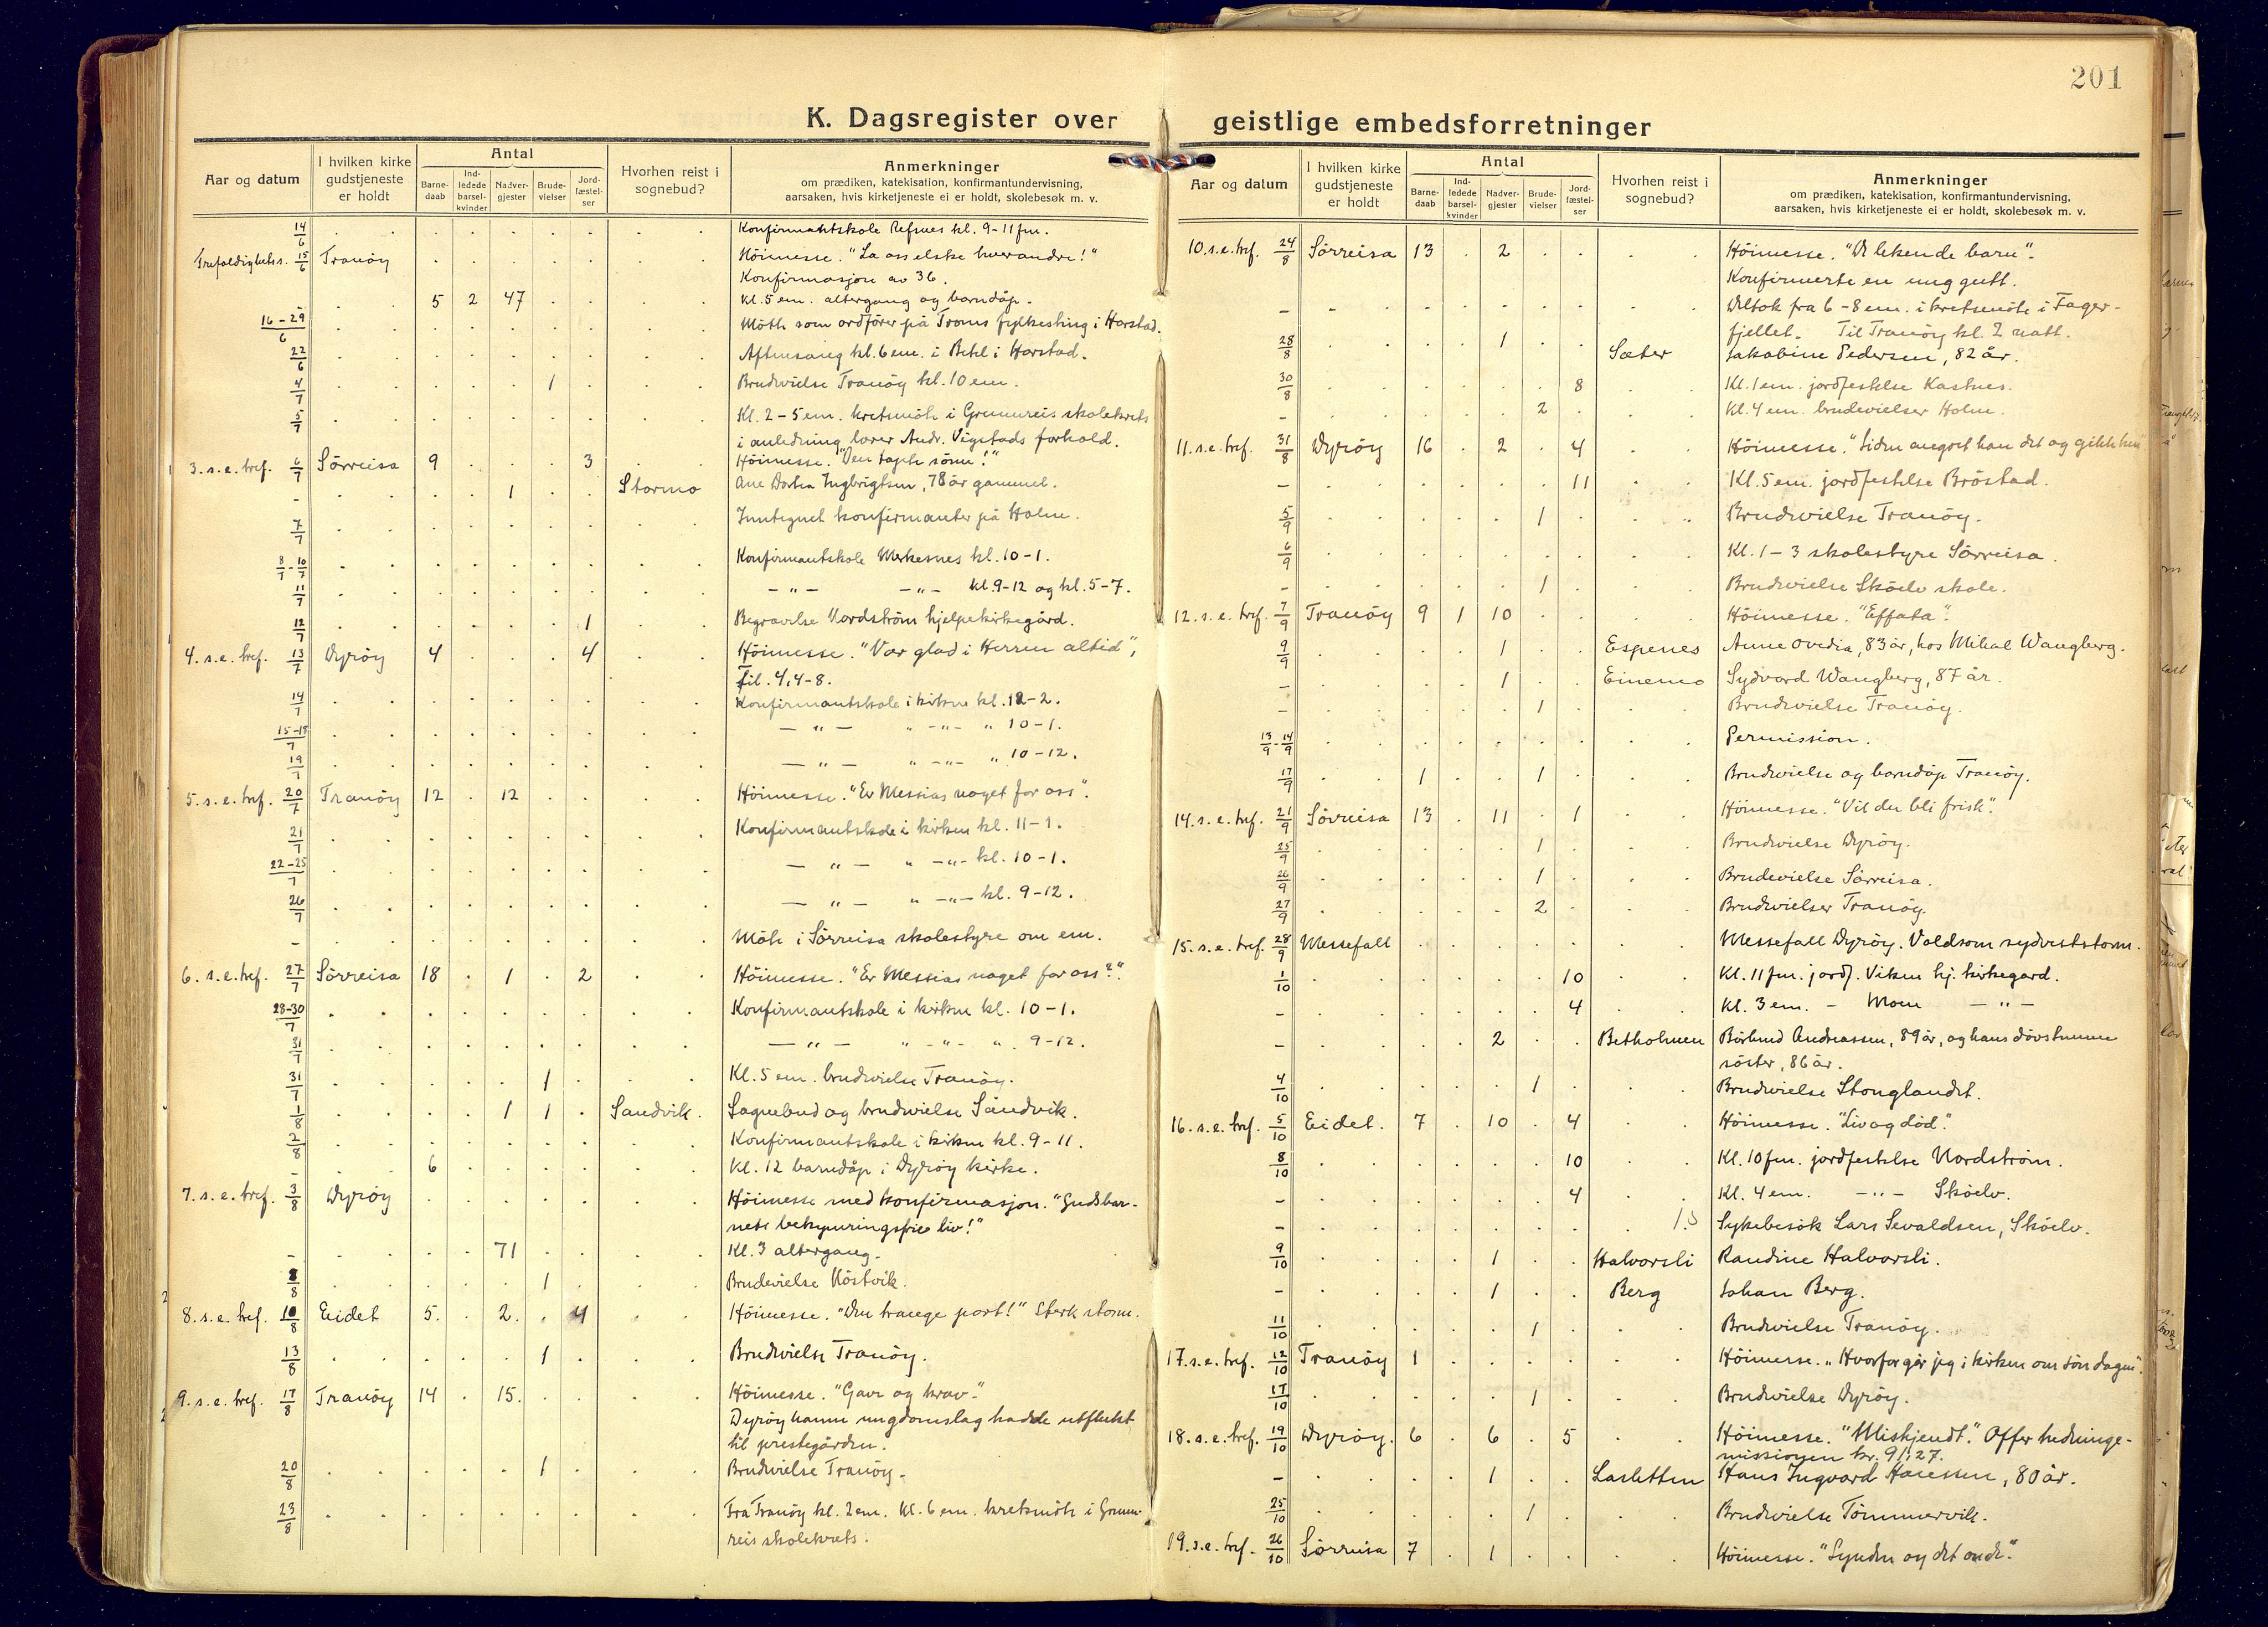 201
K. Dagsregister over
Aar og datum
I hvilken kirke gudstjeneste er holdt
Antal
Barne-daab
Ind-ledede barsel-kvinder
Nadver-gjester
Brude-vielser
Jord-fæstel-ser
Hvorhen reist i sognebud?
Anmerkninger
om prædiken, katekisation, konfirmantundervisning,
aarsaken, hvis kirketjeneste ei er holdt, skolebesøk m. v.
14/6 Konfirmantskole Refsnes kl. 9-11 fm.
Trefoldighetss. 15/6 Tranöy Höimesse. "La oss elske hverandre!"
Konfirmasjon av 36.
5 2 47 Kl. 5 em. altergang og barndåp.
16-29/6 Mötte som ordförer på Troms fylkesting i Harstad.
22/6 Aftensang kl. 6 em. i Betel i Harstad.
4/7 1 Brudevielse Tranöy kl. 10 em.
5/7 Kl. 2-5 em. kretsmöte i Grunnreis skolekrets
i anledning lærer Andr. Vigstads forhold.
3. s. e. tref. 6/7 Sörreisa 9 3 Höimesse. "Den tapte sönn!"
- 1 Stormo Ane Dortea Ingbrigtsen, 78 år gammel.
7/7 Inntegnet konfirmanter på Holm.
8/7-10/7 Konfirmantskole kl. 10-1.
11/7 - " - - " - kl. 9-12 og kl. 5-7.
12/7 1 Begravelse Nordström hjelpekirkegård.
4. s. e. tref. 13/7 Dyröy 4 4 Höimesse. "Vær glad i Herren altid",
Fil. 4, 4-8.
14/7 Konfirmantskole i kirken kl. 12-2.
15-18/7 - " - " - " - " 10-1.
19/7 - " - " - " - " 10-12.
5. s. e. tref. 20/7 Tranöy 12 12 Höimesse. "Er Messias noget for oss".
21/7 Konfirmantskole i kirken kl. 11-1.
22-25/7 - " - " - " - kl. 10-1.
26/7 - " - " - " - kl. 9-12.
- Möte i Sörreisa skolestyre om em.
6. s. e. tref. 27/7 Sörreisa 18 1 2 Höimesse. "Er Messias noget for oss?".
28-30/7 Konfirmantskole i kirken kl. 10-1.
31/7 - " - " - " - " 9-12.
31/7 1 Kl. 5 em. brudevielse Tranöy.
1/8 1 1 Sandvik. Sognebud og brudevielse Sandvik.
2/8 Konfirmantskole i kirken kl. 9-11.
- 6 Kl. 12 barndåp i Dyröy kirke.
7. s. e. tref. 3/8 Dyröy Höimesse med konfirmasjon. "Gudsbar-
nets bekymringsfrie liv!"
- 71 Kl. 3 altergang.
8/8 1 Brudevielse Köstvik.
8. s. e. tref. 10/8 Eidet 5. 2. 4 Höimesse. "Den trange port!" Sterk storm.
13/8 1 Brudevielse Tranöy.
9. s. e. tref. 17/8 Tranöy 14 15. Höimesse. "Gave og krav."
Dyröyhamn ungdomslag hadde utflukt
til prestegården.
20/8 1 Brudevielse Tranöy.
23/8 Fra Tranöy kl. 2 em. Kl. 6 em. kretsmöte i Grunn-
reis skolekrets.
geistlige embedsforretninger
Aar og datum
I hvilken kirke gudstjeneste er holdt
Antal
Barne-daab
Ind-ledede barsel-kvinder
Nadver-gjester
Brude-vielser
Jord-fæstel-ser
Hvorhen reist i sognebud?
Anmerkninger
om prædiken, katekisation, konfirmantundervisning,
aarsaken, hvis kirketjeneste ei er holdt, skolebesøk m. v.
10. s. e. tref. 24/8 Sörreisa 13 2 Höimesse. "De lekende barn".
Konfirmerte en ung gutt.
- Deltok fra 6-8 em. i kretsmöte i Fager-
fjellet. Til Tranöy kl. 2 natt.
28/8 1 Sæter Jakobine Pedersen, 82 år.
30/8 8 Kl. 1 em. jordfestelse Kastnes.
- 2 Kl. 4 em. brudevielser Holm.
11. s. e. tref. 31/8 Dyröy 16 2 4 Höimesse. "Siden angret han det og gikk hen"
- 11 Kl. 5 em. jordfestelse Bröstad.
5/9 1 Brudevielse Tranöy.
6/9 Kl. 1-3 skolestyre Sörreisa.
- 1 Brudevielse Sköelv skole.
12. s. e. tref. 7/9 Tranöy 9 1 10 Höimesse. "Effata".
9/9 1 Espenes Anne Ovedia, 83 år, hos Mikal Wangberg.
- 1 Einemo Sydvard Wangberg, 87 år.
- 1 Brudevielse Tranöy.
13/9-14/9 Permission.
17/9 1 1 Brudevielse og barndåp Tranöy.
14. s. e. tref. 21/9 Sörreisa 13 11 1 Höimesse. "Vil du bli frisk".
25/9 1 Brudevielse Dyröy.
26/9 1 Brudevielse Sörreisa.
27/9 2 Brudevielser Tranöy.
15. s. e. tref. 28/9 Messefall Messefall Dyröy. Voldsom sydveststorm.
1/10 10 Kl. 11 fm. jordf. Viken hj. kirkegård.
- 4 Kl. 3 em. - Moen - " -
- 2 Betholmen Andreassen, 89 år, og hans dövstumme
söster, 86 år.
4/10 1 Brudevielse Stonglandet.
16. s. e. tref. 5/10 Eidet. 7 10 4 Höimesse. "Liv og död".
8/10 10 Kl. 10 fm. jordfestelse Nordström.
- 4 Kl. 4 em. - " - Sköelv.
- Sykebesök Lars Sevaldsen, Sköelv.
9/10 1 Halvorsli Randine Halvorsli.
- 1 Berg Johan Berg.
11/10 1 Brudevielse Tranöy.
17. s. e. tref. 12/10 Tranöy 1 Höimesse. "Hvorfor går jeg i kirken om söndagen".
17/10 1 Brudevielse Dyröy.
18. s. e. tref. 19/10 Dyröy. 6 6 5 Höimesse. "Miskjendt". Offer hedninge-
missionen kr. 91,27.
- 1 Lasletten Hans Ingvard Hanssen, 80 år.
25/10 1 Brudevielse Tömmervik.
19. s. e. tref. 26/10 Sörreisa 7 1 Höimesse. "Synden og det onde".